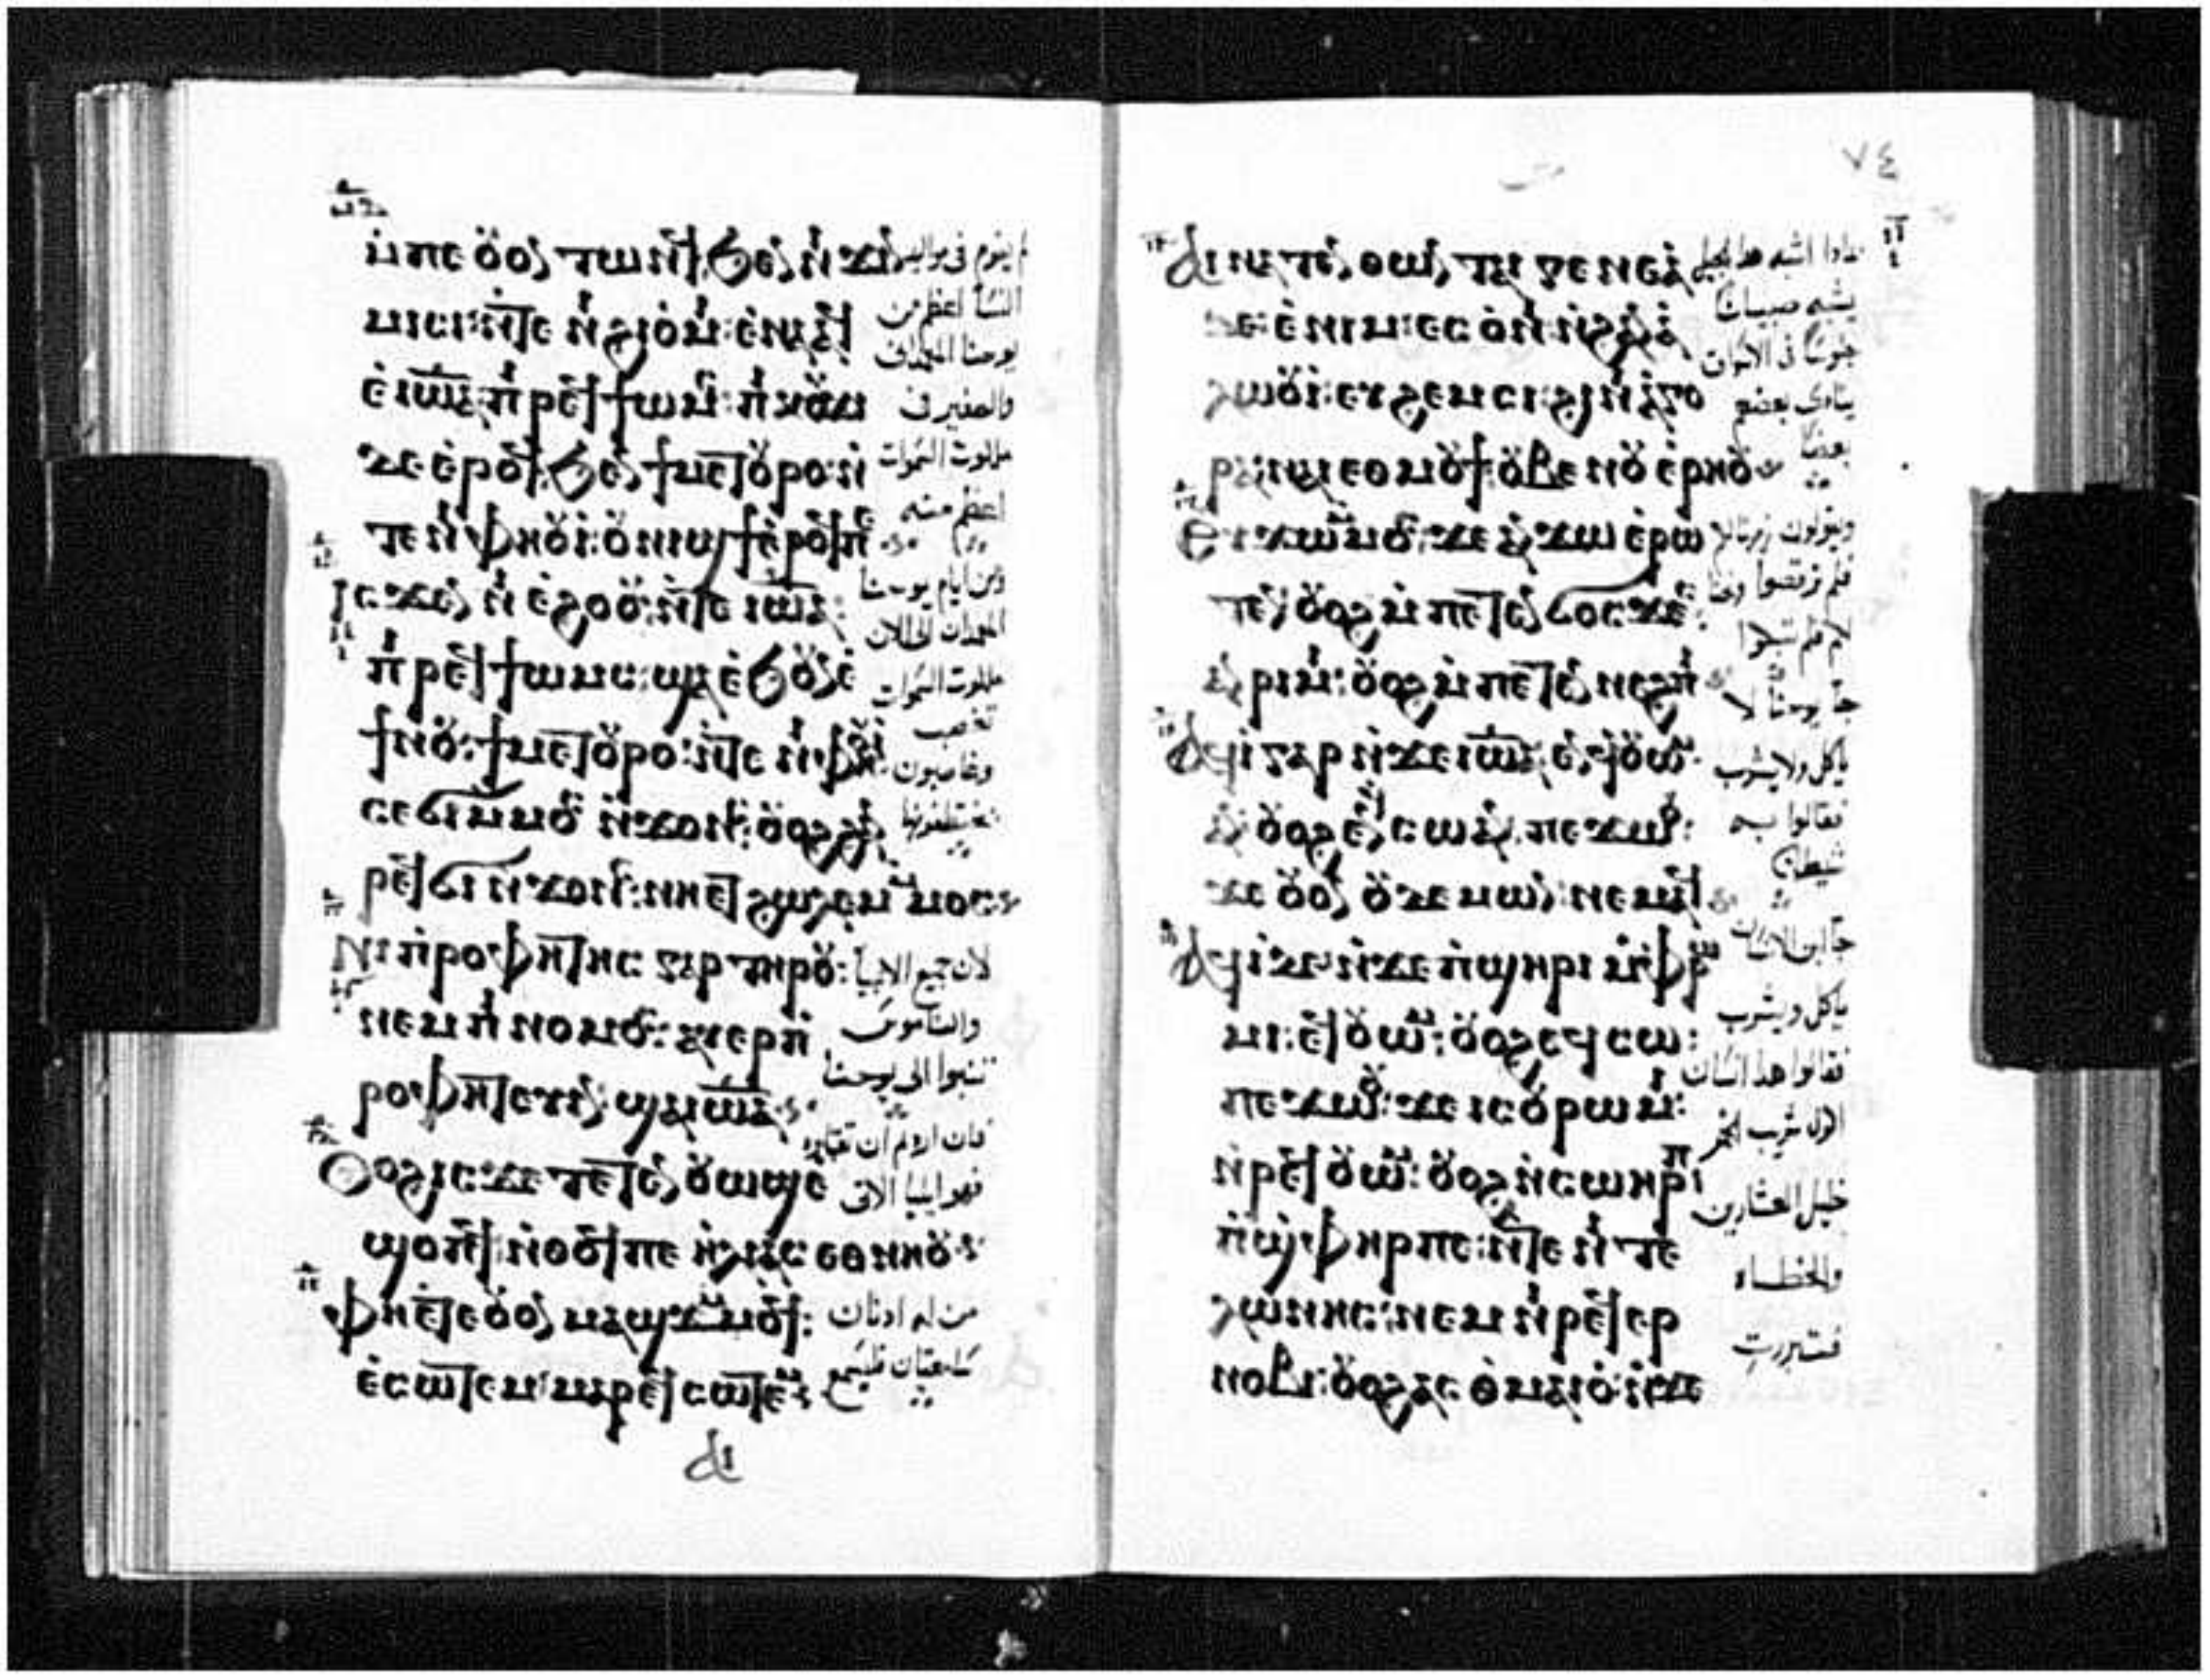 ⲙ̇ⲡⲉ ⲟⲩⲟⲛ ⲧⲱⲛϥ ϧⲉⲛ ⲛⲓϫⲓⲛ
ⲙⲓⲥⲓ: ⲛ̇ⲧⲉ ⲛⲓϩⲓⲟⲙⲓ: ⲉ̇ⲛⲁⲁϥ
ⲉ̇ⲓⲱⲁ: ⲡⲓⲣⲉϥϯⲱⲙⲥ: ⲡⲓⲕⲟⲩϫⲓ
ⲇⲉ ⲉ̇ⲣⲟϥ: ϧⲉⲛ ϯⲙⲉⲧⲟⲩⲣⲟ: ⲛ̇
ⲧⲉ ⲛⲓⲫⲏⲟⲩⲓ: ⲟⲩⲛⲓϣϯ ⲉ̇ⲣⲟϥ ⲡⲉ
Ⲓⲥϫⲉⲛ ⲛⲓⲉ̇ϩⲟⲟⲩ: ⲛ̇ⲧⲉ ⲓⲱⲁ:
ⲡⲓⲣⲉϥϯⲱⲙⲥ: ϣⲁ ⲉ̇ϧⲟⲩⲛ ⲉ̇
ϯⲛⲟⲩ: ϯⲙⲉⲧⲟⲩⲣⲟ: ⲛ̇ⲧⲉ ⲛⲓⲫⲏⲟⲩⲓ
ⲥⲉϭⲓ ⲙ̇ⲙⲟⲥ ⲛ̇ϫⲟⲛⲥ: ⲟⲩⲟϩ ϩⲁⲛ
ⲣⲉϥϭⲓ ⲛ̇ϫⲟⲛⲥ: ⲛⲉⲧϩⲱⲗⲉⲙ ⲙ̇ⲙⲟⲥ
Ⲛⲓⲡ̇ⲣⲟⲫⲏⲧⲏⲥ ⲅⲁⲣ ⲧⲏⲣⲟⲩ:
ⲛⲉⲙ ⲡⲓⲛⲟⲙⲟⲥ: ⲁⲩⲉⲣⲡ̇
ⲣⲟⲫⲏⲧⲉⲩⲓⲛ ϣⲁ ⲓⲱⲁ
Ⲟⲩⲟϩ ⲓⲥϫⲉ ⲧⲉⲧⲉⲛⲟⲩⲱϣ ⲉ̇
ϣⲟⲡϥ: ⲛ̇ⲑⲟϥ ⲡⲉ ⲏ̇ⲗⲓⲁⲥ ⲉⲑⲛⲏⲟⲩ
ⲫⲏⲉ̇ⲧⲉ ⲟⲩⲟⲛ ⲙⲁϣϫ ⲙ̇ⲙⲟϥ:
ⲉ̇ⲥⲱⲧⲉⲙ: ⲙⲁⲣⲉϥⲥⲱⲧⲉⲙ
ⲁⲓ
لم يقوم فى مواليد
النسا اعظم من
يوحنا المعمدان
والصغير فى
ملكوت السموات
اعظم منه
ومن ايام يوحنا
المعمدان الى الان
ملكوت السموات
تغصب
وغاصبون
يختطفونها
لان جميع الانبيا
والناموس
تنبوا الى يوحنا
فان اردتم ان تقبلوه
فهو ايليا الاتى
من له ادنان
سامعتان فليسمع
٧٤
Ⲁⲓⲛⲁⲧⲉⲛⲑⲱⲛ ⲧⲁⲓⲅⲉⲛⲉⲁ
ⲇⲉ: ⲉ̇ⲛⲓⲙ: ⲉⲥⲟ̀ⲛⲓ ⲛ̇ϩⲁⲛⲁ̀
ⲗⲱⲟⲩⲓ: ⲉⲩϩⲉⲙⲥⲓ: ϩⲓ ⲛⲓⲁ̀ⲅⲟ
ⲣⲁ: ⲛⲁⲓ ⲉⲑⲙⲟⲩϯ: ⲟⲩⲃⲉ ⲛⲟⲩⲉ̇ⲣⲏⲟⲩ
Ⲉⲩϫⲱ ⲙ̇ⲙⲟⲥ: ϫⲉ ⲁⲛϫⲱ ⲉ̇ⲣⲱ
ⲧⲉⲛ: ⲟⲩⲟϩ ⲙ̇ⲡⲉⲧⲉⲛϭⲟⲥϫⲉⲥ:
ⲁⲛⲣⲓⲙⲓ: ⲟⲩⲟϩ ⲙ̇ⲡⲉⲧⲉⲛⲛⲉϩⲡⲓ
Ⲁϥⲓ̀ ⲅⲁⲣ ⲛ̇ϫⲉ ⲓⲱⲁ: ⲉ̇ⲛϥⲟⲩⲱⲙ
ⲁⲛ ⲟⲩⲟϩ ⲉ̇ⲛϥⲥⲱ ⲁⲛ: ⲡⲉϫⲱⲟⲩ:
ϫⲉ ⲟⲩⲟⲛ ⲟⲩⲇⲉⲙⲱⲛ: ⲛⲉⲙⲁϥ
Ⲁϥⲓ̀ ⲇⲉ: ⲛ̇ϫⲉ ⲡ̇ϣⲏⲣⲓ ⲙ̇ⲫⲣⲱ
ⲙⲓ: ⲉϥⲟⲩⲱⲙ: ⲟⲩⲟϩ ⲉϥⲥⲱ:
ⲡⲉϫⲱⲟⲩ: ϫⲉ ⲓⲥ ⲟⲩⲣⲱⲙⲓ:
ⲛ̇ⲣⲉϥⲟⲩⲱⲙ: ⲟⲩⲟϩ ⲛ̇ⲥⲁⲩⲏⲣⲡ
ⲡ̇ϣⲫⲏⲣ ⲡⲉ: ⲛ̇ⲧⲉ ⲛⲓⲧⲉ
ⲗⲱⲛⲏⲥ: ⲛⲉⲙ ⲛⲓⲣⲉϥⲉⲣ
ⲛⲟⲃⲓ: ⲟⲩⲟϩ ⲁⲥⲑ̀ⲙⲁⲓⲟ: ⲛ̇ϫⲉ
بماذا اشبه هذا الجيل
يشبه صبيانا
جلوسا فى الاسواق
ينادى بعضهم
بعضا
ويقولون زمرنا لكم
فلم ترقصوا ونحنا
لكم فلم تبكوا
جا يوحنا لا
ياكل ولا يشرب
فقالوا به
شيطان
جا ابن الانسان
ياكل ويشرب
فقالوا هذا انسان
اكول شريب الخمر
خليل العشارين
والخطاه
فتبررت